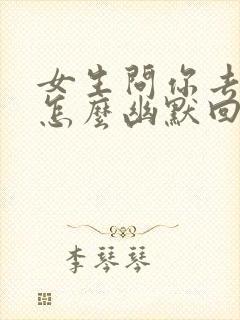 女生問你去
怎麼幽默回
李琴琴